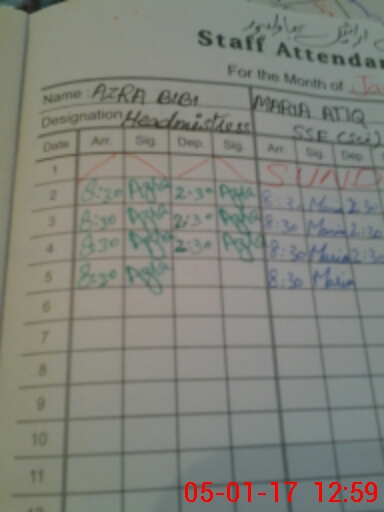 Staff Attendan
For the Month of Ja
Name: AZRA BIBI MARIA ATIQ
Designation Headmistress SSE (Sci)
Date Arr. Sig. Dep. Sig. Arr. Sig. Dep.
1 SUND
2 8:30 Azra 2:30 Azra 8:30 Maria 2:30
3 8:30 Azra 2:30 Azra 8:30 Maria 2:30
4 8:30 Azra 2:30 Azra 8:30 Maria 2:30
5 8:30 Azra 8:30 Maria
6
7
8
9
10
11
05-01-17 12:59